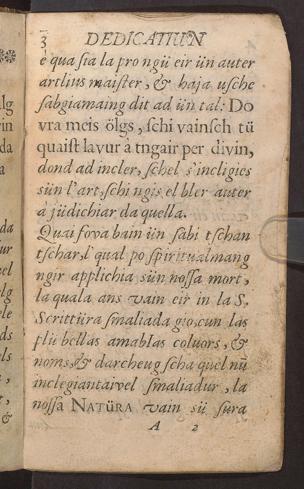 3
DEDICATIUN
è qua sia la pro ngü eir ün auter
artlius maister, & haja usche
sabgiamaing dit ad ün tal: Do
vra meis ölgs, schi vainsch tü
quaist lavur à tngair per divin,
dond ad incler, schel s'incligies
sün l'art, schi ngis el bler auter
à jüdichiar da quella.
Quai fova bain ün sabi tschan
tschar, l'qual po spiritualmang
ngir applichia sün nossa mort,
la quala ans vain eir in la S.
Scrittüra smaliada gio, cun las
plü bellas amablas coluors, &
noms, & darcheug scha quel nü
inclegiantaivel smaliadur, la
nossa NATÜRA vain sü sura
A 2